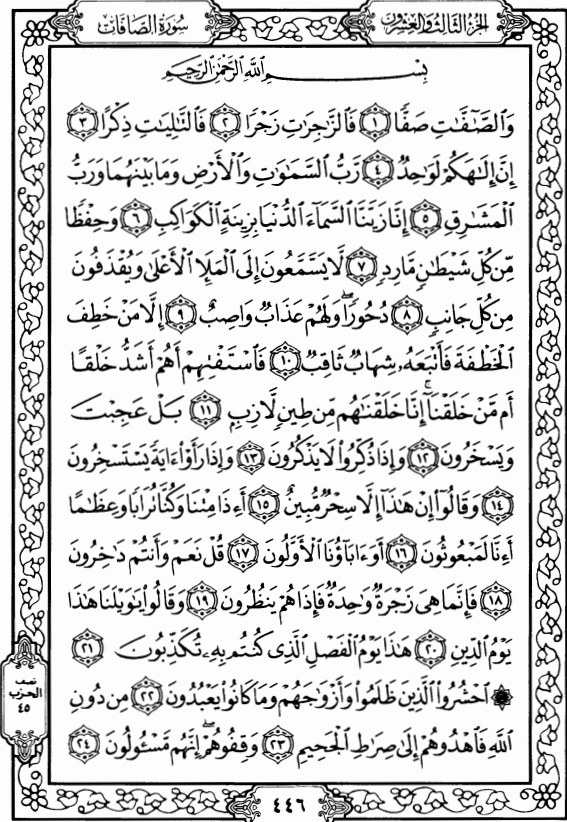 الجزء الثالث والعشرون
سورة الصافات
بِسْمِ اللَّهِ الرَّحْمَٰنِ الرَّحِيمِ
وَٱلصَّٰٓفَّٰتِ صَفًّا ١ فَٱلزَّٰجِرَٰتِ زَجْرًا ٢ فَٱلتَّٰلِيَٰتِ ذِكْرًا ٣
إِنَّ إِلَٰهَكُمْ لَوَٰحِدٌ ٤ رَّبُّ ٱلسَّمَٰوَٰتِ وَٱلْأَرْضِ وَمَا بَيْنَهُمَا وَرَبُّ
ٱلْمَشَٰرِقِ ٥ إِنَّا زَيَّنَّا ٱلسَّمَآءَ ٱلدُّنْيَا بِزِينَةٍ ٱلْكَوَاكِبِ ٦ وَحِفْظًا
مِّن كُلِّ شَيْطَٰنٍ مَّارِدٍ ٧ لَّا يَسَّمَّعُونَ إِلَى ٱلْمَلَإِ ٱلْأَعْلَىٰ وَيُقْذَفُونَ
مِن كُلِّ جَانِبٍ ٨ دُحُورًا ۖ وَلَهُمْ عَذَابٌ وَاصِبٌ ٩ إِلَّا مَنْ خَطِفَ
ٱلْخَطْفَةَ فَأَتْبَعَهُۥ شِهَابٌ ثَاقِبٌ ١٠ فَٱسْتَفْتِهِمْ أَهُمْ أَشَدُّ خَلْقًا
أَم مَّنْ خَلَقْنَآ ۚ إِنَّا خَلَقْنَٰهُم مِّن طِينٍ لَّازِبٍ ١١ بَلْ عَجِبْتَ
وَيَسْخَرُونَ ١٢ وَإِذَا ذُكِّرُوا۟ لَا يَذْكُرُونَ ١٣ وَإِذَا رَأَوْا۟ ءَايَةً يَسْتَسْخِرُونَ
١٤ وَقَالُوٓا۟ إِنْ هَٰذَآ إِلَّا سِحْرٌ مُّبِينٌ ١٥ أَءِذَا مِتْنَا وَكُنَّا تُرَابًا وَعِظَٰمًا
أَءِنَّا لَمَبْعُوثُونَ ١٦ أَوَءَابَآؤُنَا ٱلْأَوَّلُونَ ١٧ قُلْ نَعَمْ وَأَنتُمْ دَٰخِرُونَ
١٨ فَإِنَّمَا هِىَ زَجْرَةٌ وَٰحِدَةٌ فَإِذَا هُمْ يَنظُرُونَ ١٩ وَقَالُوا۟ يَٰوَيْلَنَا هَٰذَا
يَوْمُ ٱلدِّينِ ٢٠ هَٰذَا يَوْمُ ٱلْفَصْلِ ٱلَّذِى كُنتُم بِهِۦ تُكَذِّبُونَ ٢١
۞ ٱحْشُرُوا۟ ٱلَّذِينَ ظَلَمُوا۟ وَأَزْوَٰجَهُمْ وَمَا كَانُوا۟ يَعْبُدُونَ ٢٢ مِن دُونِ
ٱللَّهِ فَٱهْدُوهُمْ إِلَىٰ صِرَٰطِ ٱلْجَحِيمِ ٢٣ وَقِفُوهُمْ ۖ إِنَّهُم مَّسْـُٔولُونَ ٢٤
نصف
الحزب
٤٥
٤٤٦